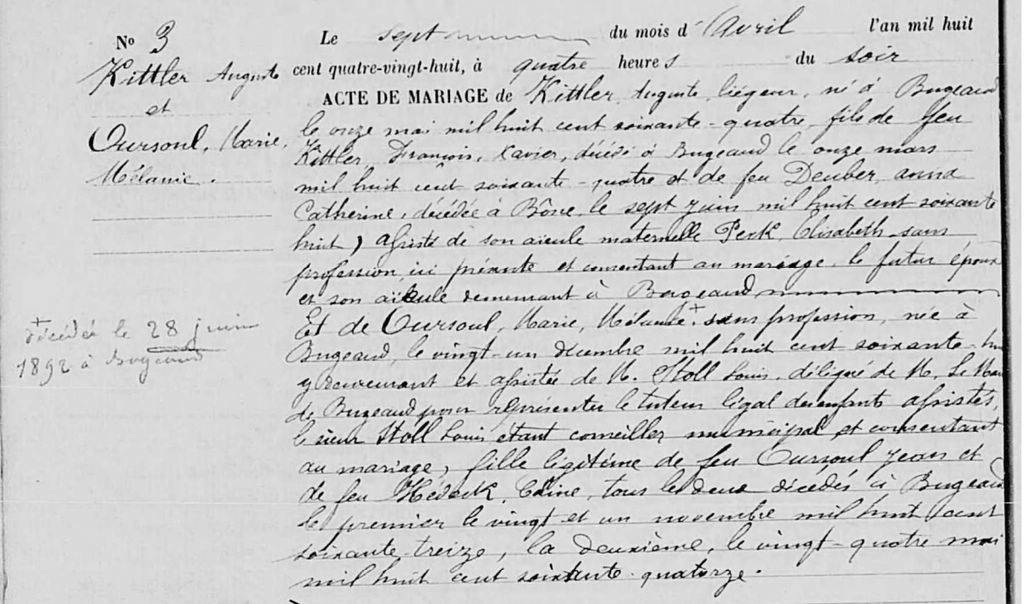 N° 3
Kittler Auguste
et
Oursoul, Marie,
Mélanie.
décédée le 28 juin
1892 à Bugeaud
Le sept du mois d'Avril l'an mil huit
cent quatre-vingt-huit, à quatre heures du soir
ACTE DE MARIAGE de Kittler, Auguste, liégeur, né à Bugeaud
le onze mai mil huit cent soixante-quatre, fils de feu
Kittler, François, Xavier, décédé à Bugeaud le onze mars
mil huit cent soixante-quatre et de feu Deuber, anna
Catherine, décédée à Bône, le sept juin mil huit cent soixante
huit, assisté de son aïeule maternelle Perk, Elisabeth sans
profession ici présente et consentant au mariage, le futur époux
et son aïeule demeurant à Bugeaud
Et de Oursoul, Marie, Mélanie + sans profession, née à
Bugeaud, le vingt-un décembre mil huit cent soixante-hu
y demeurant et assistée de M. Stoll Louis, délégué de M. Le Mai
de Bugeaud pour représenter le tuteur légal des enfants assistés,
le sieur Stoll Louis étant conseiller municipal et consentant
au mariage, fille légitime de feu Oursoul Jean et
de feu Céline, tous les deux décédés à Bugeaud
le premier le vingt et un novembre mil huit cent
soixante-treize, la deuxième, le vingt-quatre mai
mil huit cent soixante-quatorze.